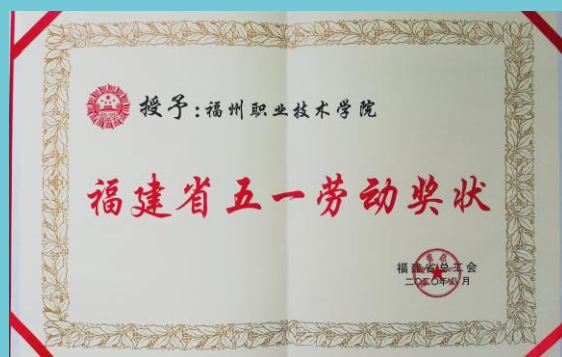 授予:福州职业技术学院
福建省五一劳动奖状
福建省总工会
二〇二〇年八月